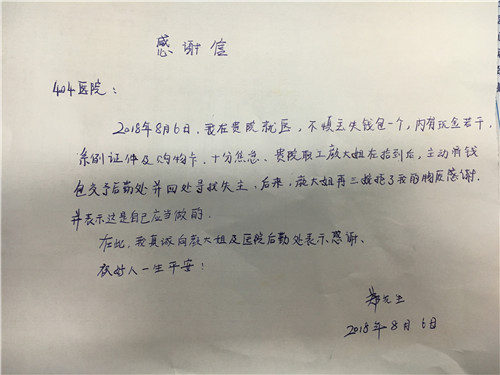 感谢信
404医院：
2018年8月6日，我在贵院就医，不慎丢失钱包一个，内有现金若干，
系列证件及购物卡，十分焦急。贵院职工庞大姐在拾到后，主动将钱
包交予后勤处并四处寻找失主，后来，庞大姐再三婉拒了我的物质感谢，
并表示这是自己应当做的。
在此，我真诚向庞大姐及医院后勤处表示感谢、
祝好人一生平安！
先生
2018年8月6日